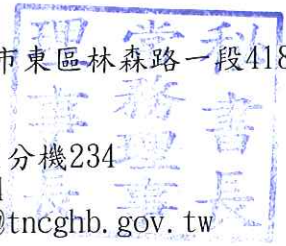 市東區林森路一段418
分機234
@tncghb.gov.tw
理事長
常務理事
秘書長